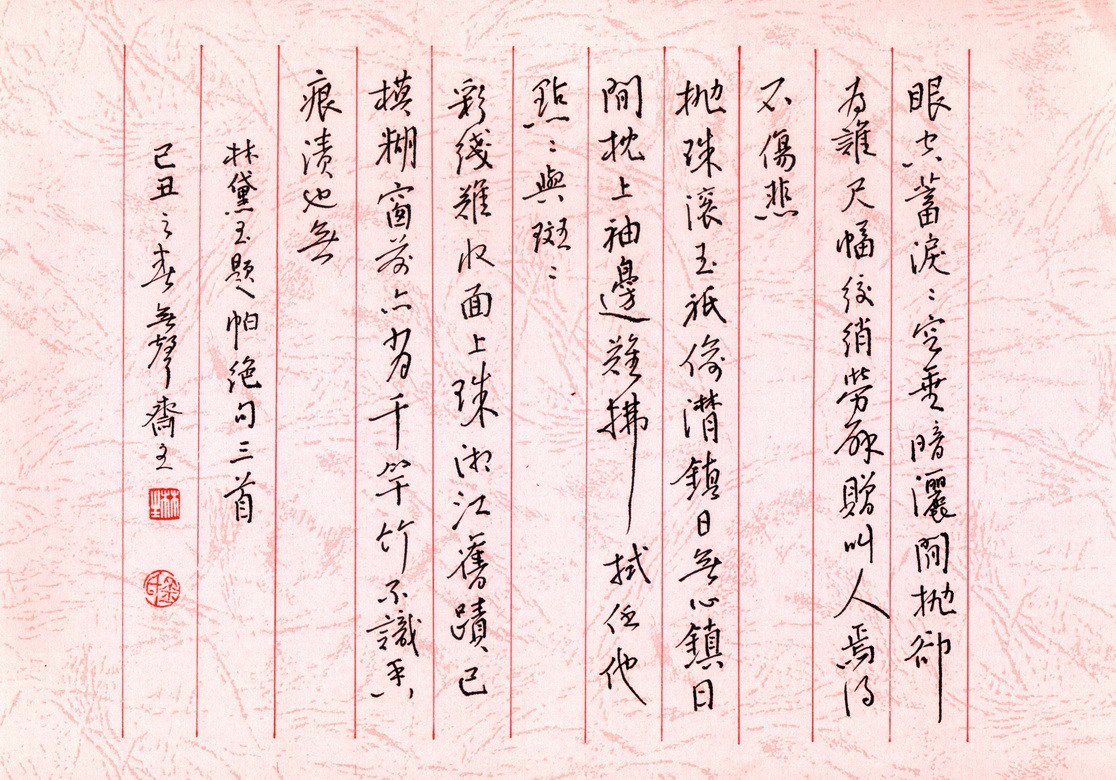 眼空蓄淚:空垂暗灑閒抛卻
为誰尺幅鲛綃勞解贈叫人焉得
不傷悲
抛珠滚玉祇偷潸鎮日無心鎮日
閒枕上袖邊難拂拭任他
點:與斑:
彩綫難收面上珠湘江舊蹟已
模糊窗前亦有千竿竹不識香
痕漬也無
林黛玉題帕絕句三首
己丑之春無聲齋主